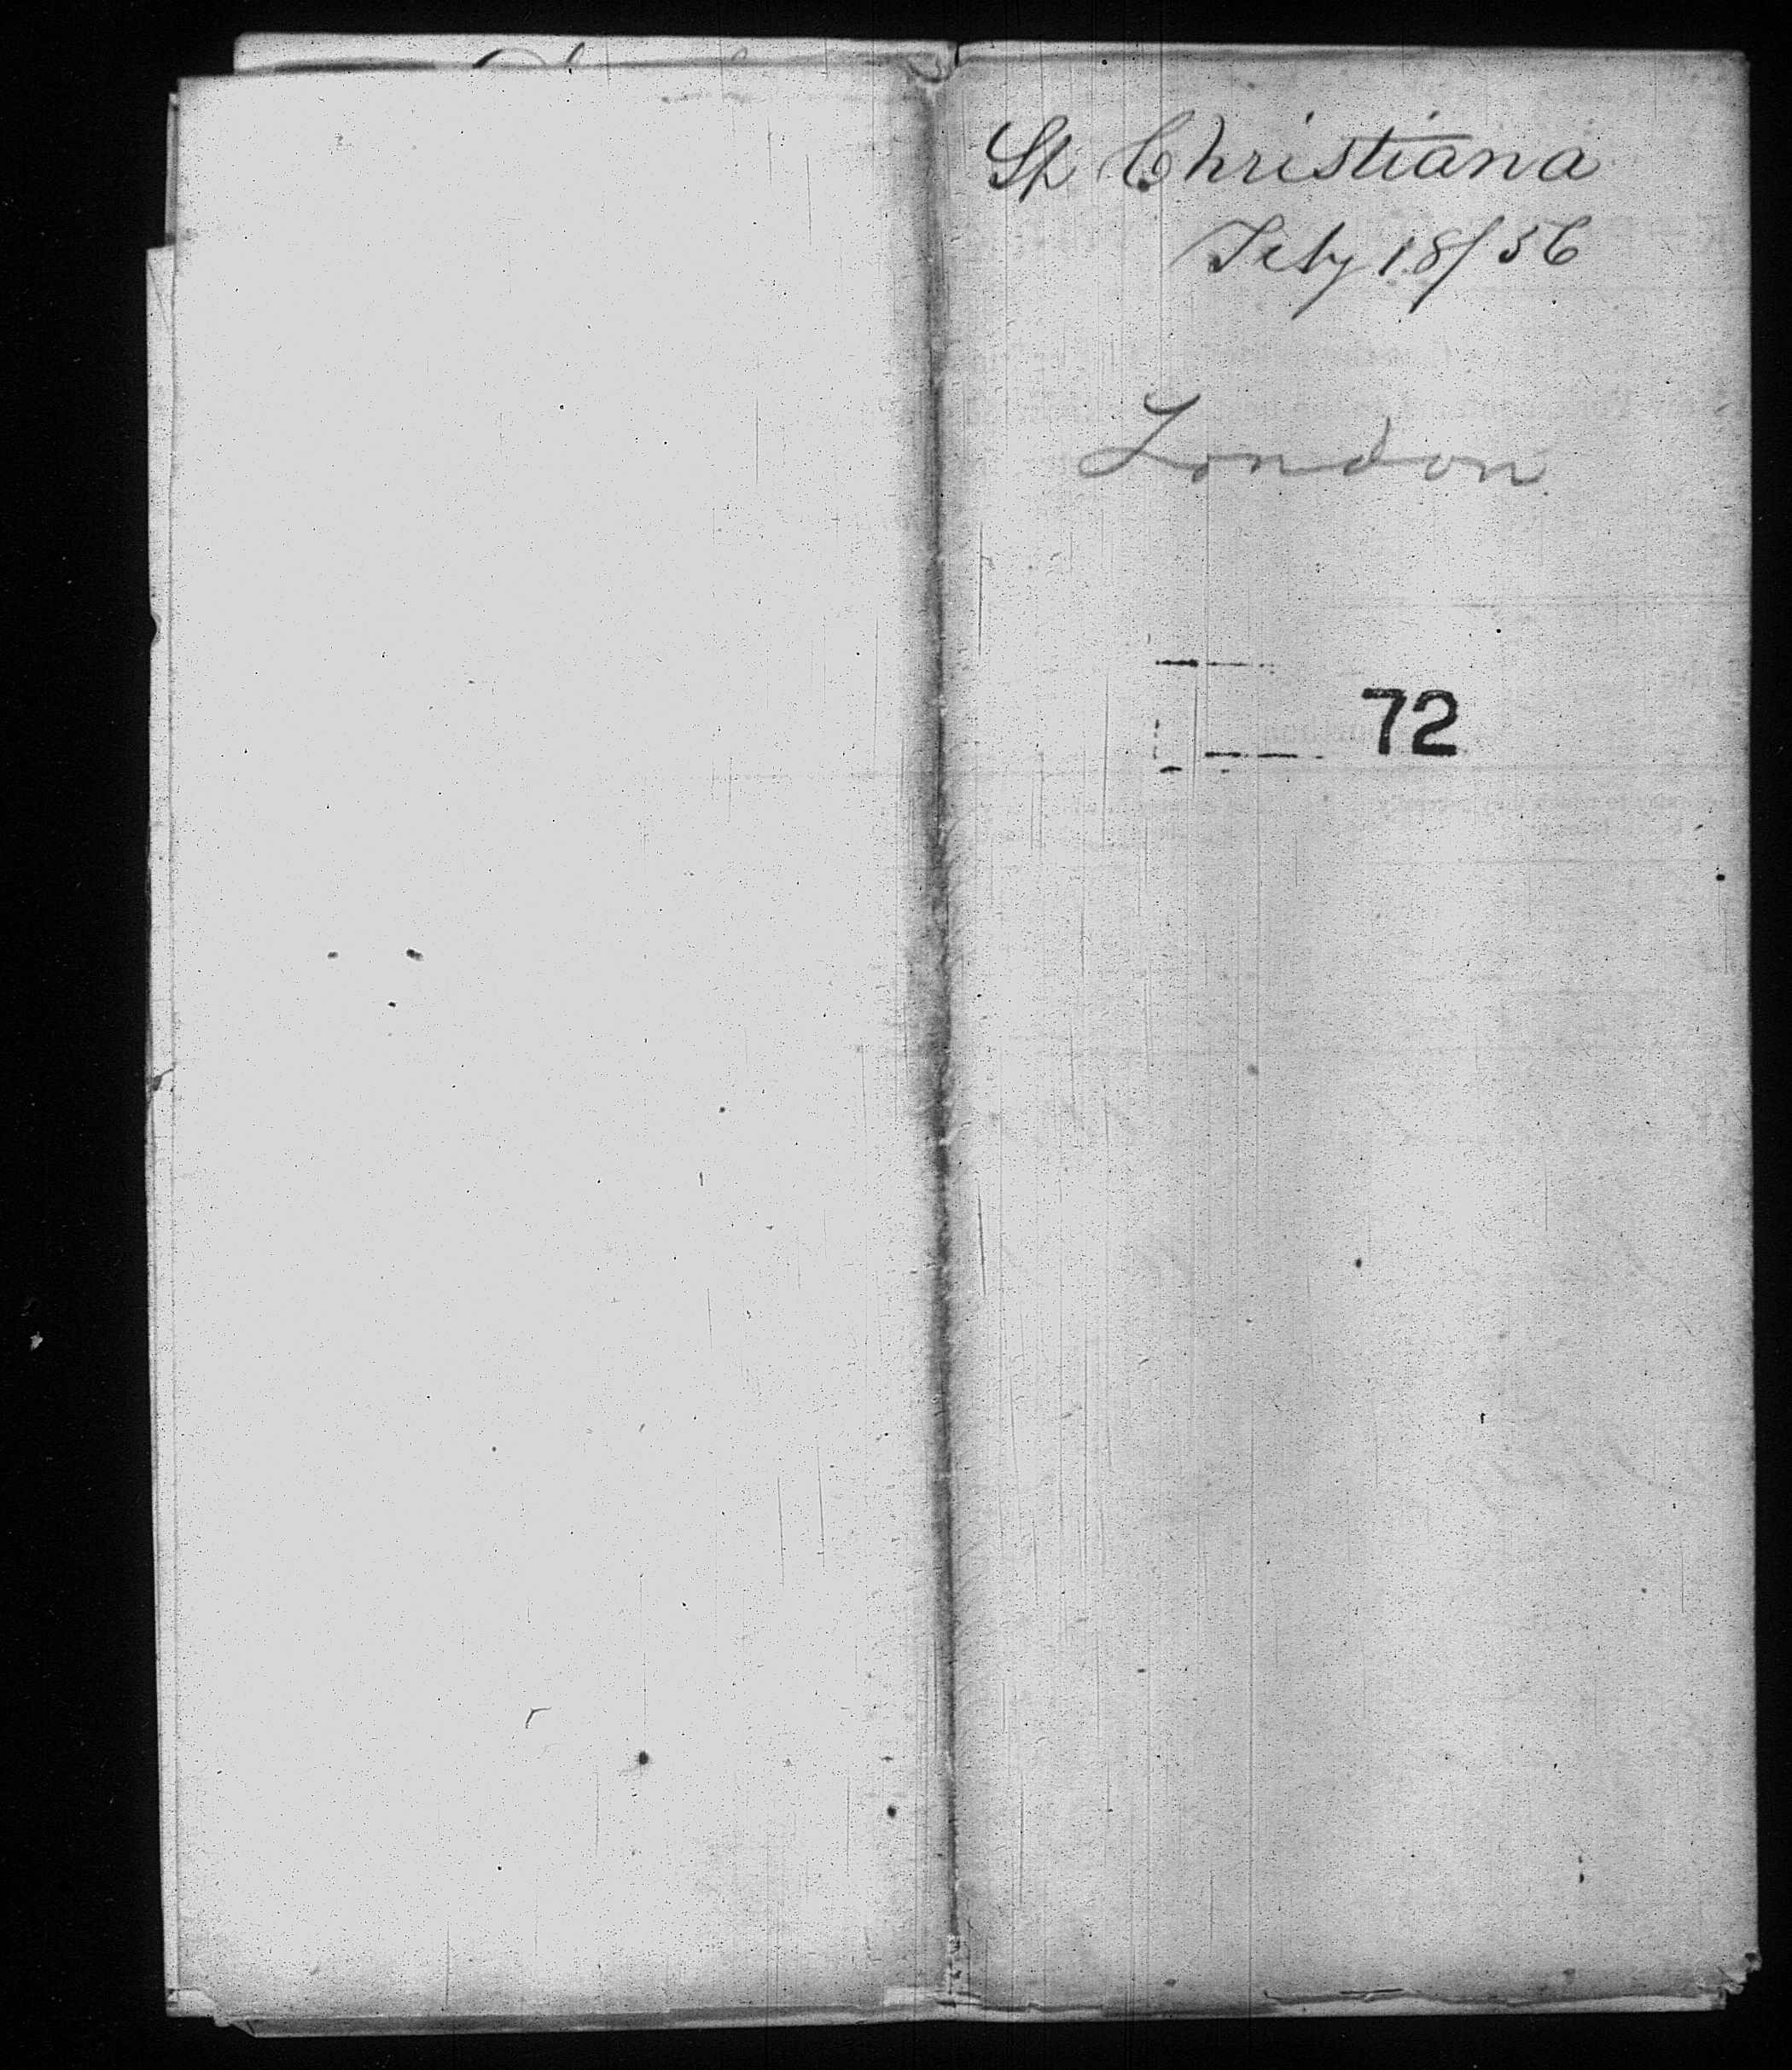 Sh Christiana
Feby 18/56
London
72